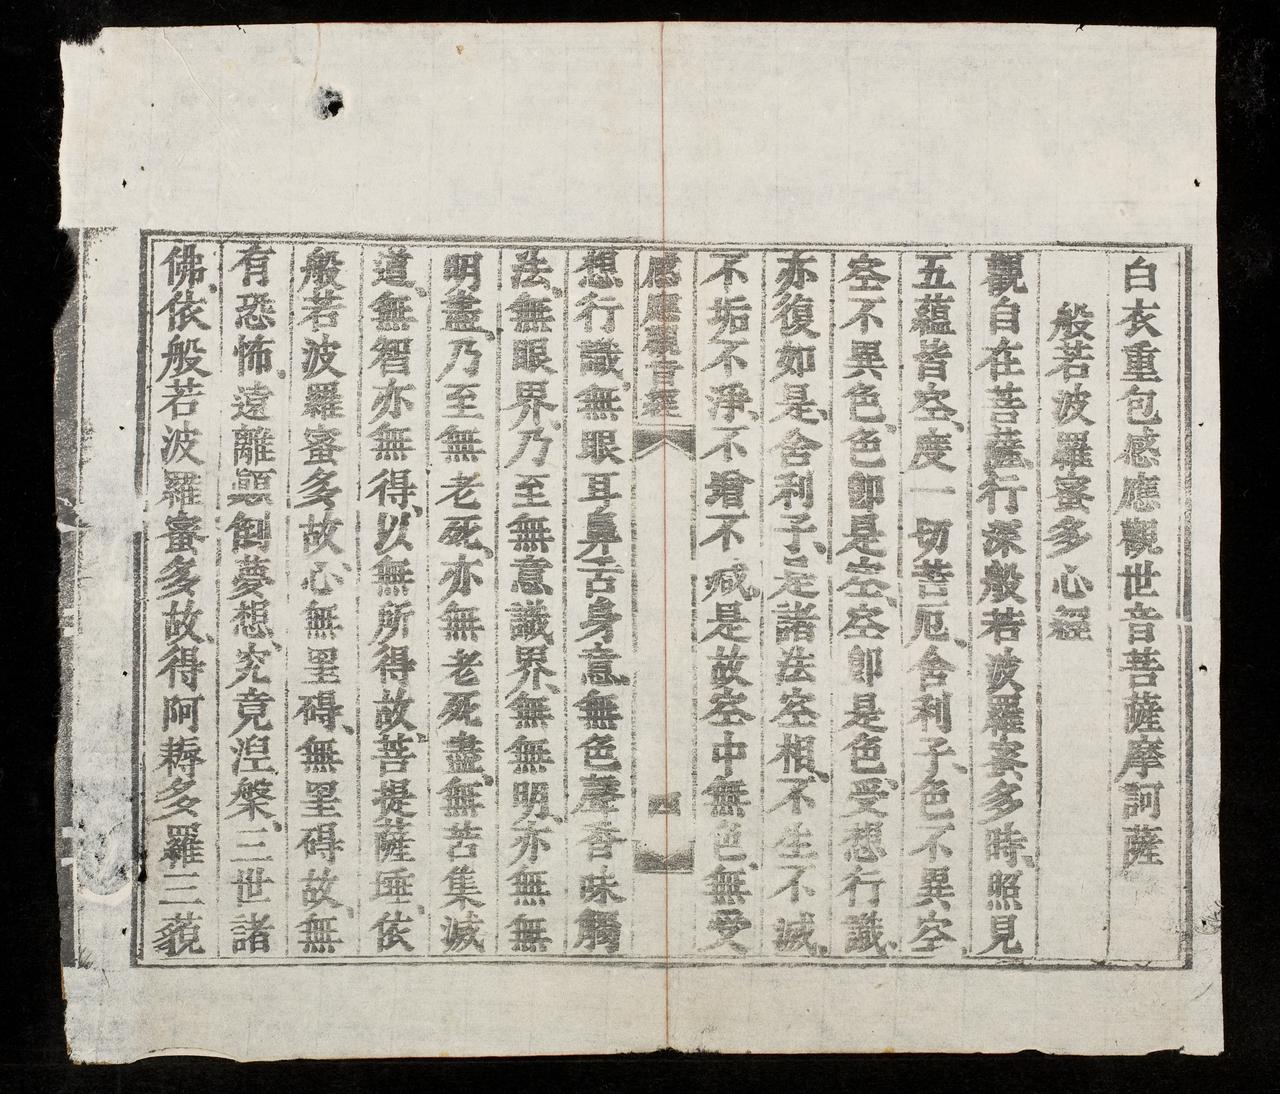 白衣重包感應觀世音菩薩摩訶薩
般若波羅蜜多心經
觀自在菩薩、行深般若波羅蜜多時、照見
五蘊皆空、度一切苦厄、舍利子、色不異空、
空不異色、色即是空、空即是色、受想行識、
亦復如是、舍利子、是諸法空相、不生不滅、
不垢不淨、不增不減、是故空中無色、無受
感應觀音經
四
想行識、無眼耳鼻舌身意、無色聲香味觸
法、無眼界、乃至無意識界、無無明、亦無無
明盡、乃至無老死、亦無老死盡、無苦集滅
道、無智亦無得、以無所得故、菩提薩埵、依
般若波羅蜜多故、心無罣碍、無罣碍故、無
有恐怖、遠離顛倒夢想、究竟涅槃、三世諸
佛、依般若波羅蜜多故、得阿耨多羅三藐